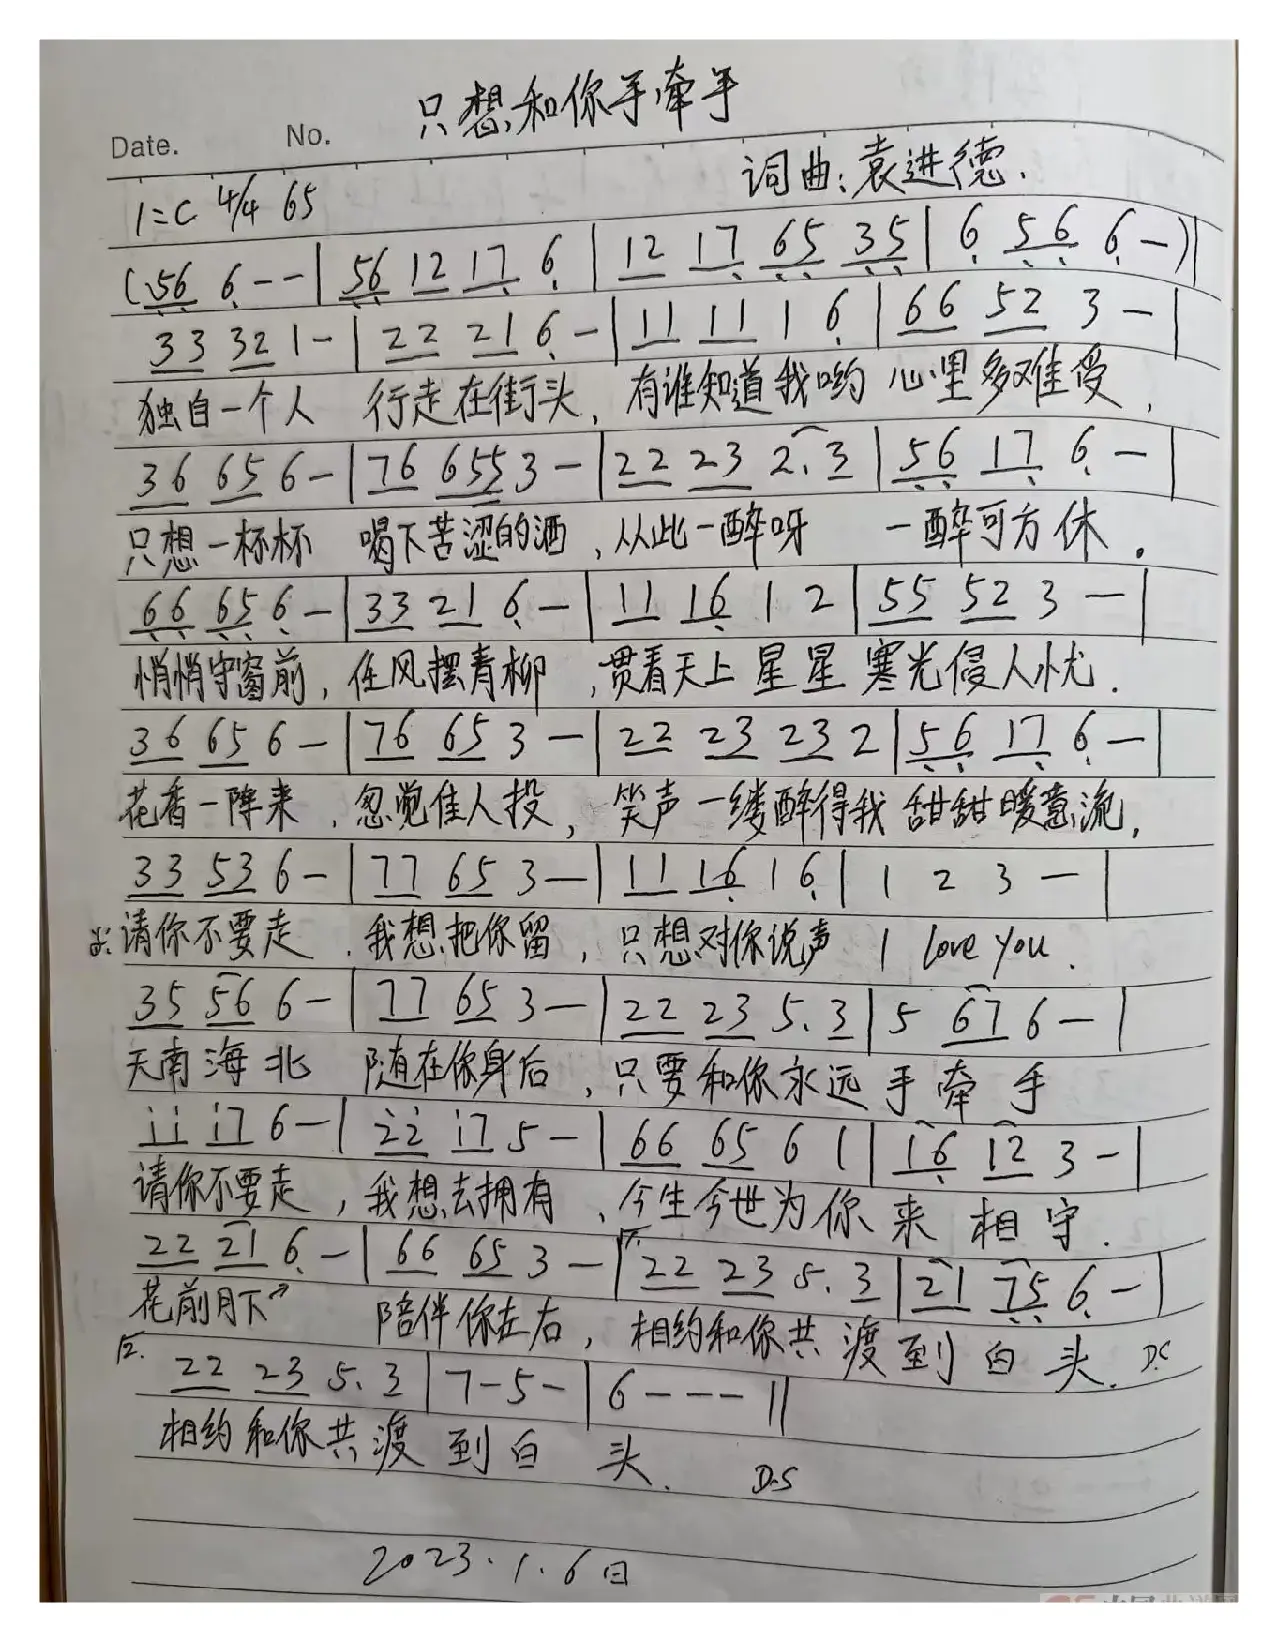 只想和你手牵手
Date. No.
词曲:袁进德.
1=C 4/4 65
(56 6 - - | 56 12 17 6 | 12 17 65 35 | 6 56 6 -)|
33 32 1 - | 22 21 6 - | 11 11 1 6 | 66 52 3 - |
独自一个人 行走在街头, 有谁知道我哟 心里多难受,
36 65 6 - | 76 655 3 - | 22 23 2. 3 | 56 17 6 - |
只想一杯杯 喝下苦涩的酒, 从此一醉呀 一醉可方休.
66 65 6 - | 33 21 6 - | 11 16 1 2 | 55 52 3 - |
悄悄守窗前, 任风摆青柳, 贯看天上星星 寒光侵人忧.
36 65 6 - | 76 65 3 - | 22 23 23 2 | 56 17 6 - |
花香一阵来, 忽觉佳人投, 笑声一缕醉得我 甜甜暖意流,
33 53 6 - | 77 65 3 - | 11 16 1 6 | 1 2 3 - |
请你不要走, 我想把你留, 只想对你说声 I love you.
35 56 6 - | 77 65 3 - | 22 23 5. 3 | 5 67 6 - |
天南海北 随在你身后, 只要和你永远手牵手
ii i7 6 - | 22 i7 5 - | 66 65 6 1 | 16 12 3 - |
请你不要走, 我想去拥有, 今生今世为你来相守.
22 21 6 - | 66 65 3 - | 22 23 5. 3 | 21 75 6 - |
花前月下 陪伴你左右, 相约和你共渡到白头. D.C
22 23 5. 3 | 7 - 5 - | 6 - - - ||
相约和你共渡到白头. D.S
2023.1.6日